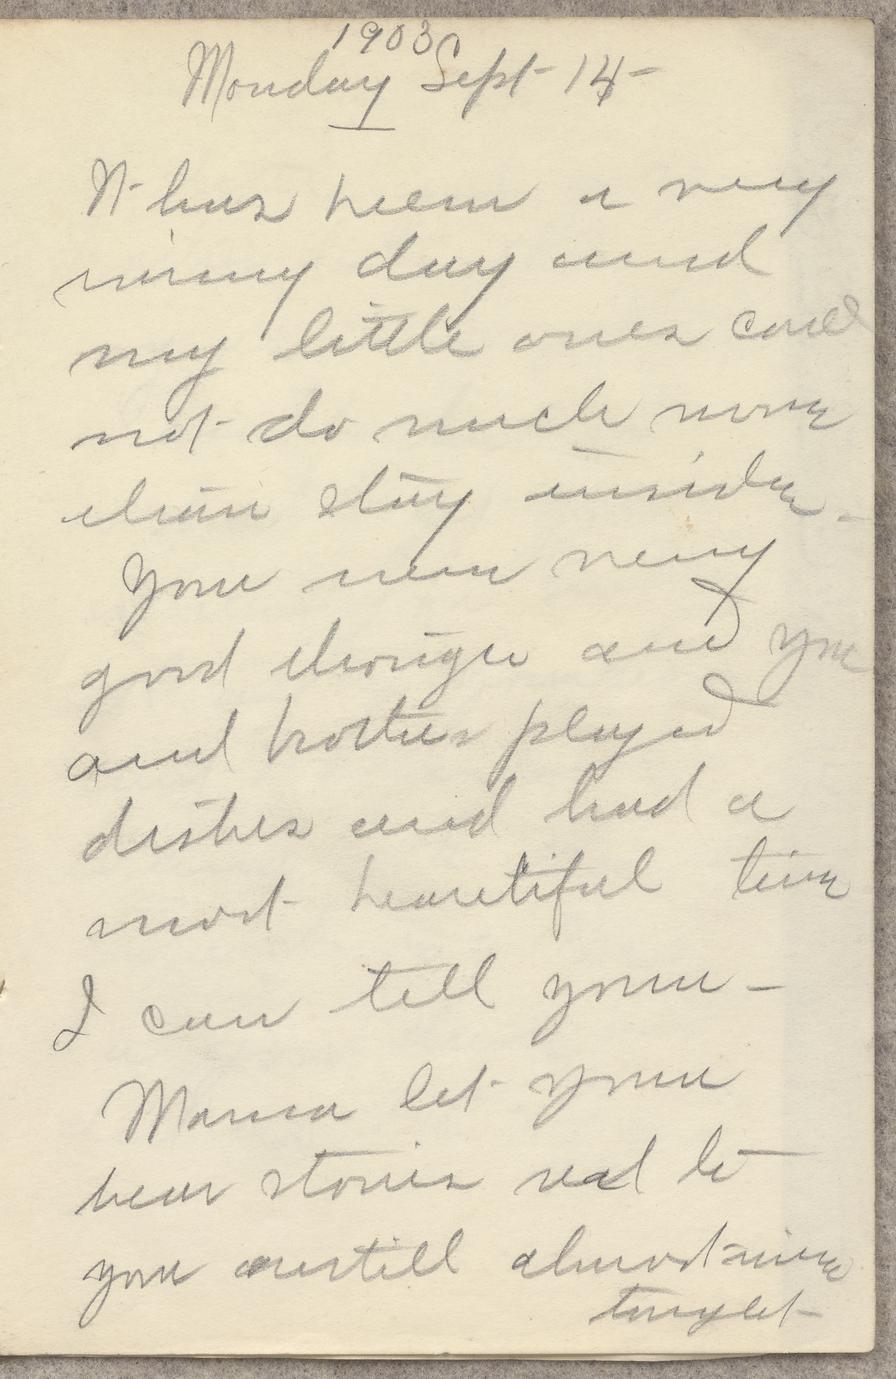 1903
Monday Sept 14
It has been a very
rainy day and
my little ones could
not do much more
than stay inside.
You were very
good though and you
and brother played
dishes and had a
most beautiful time
I can tell you -
Mama let you
hear stories read to
you until almost nine
tonight